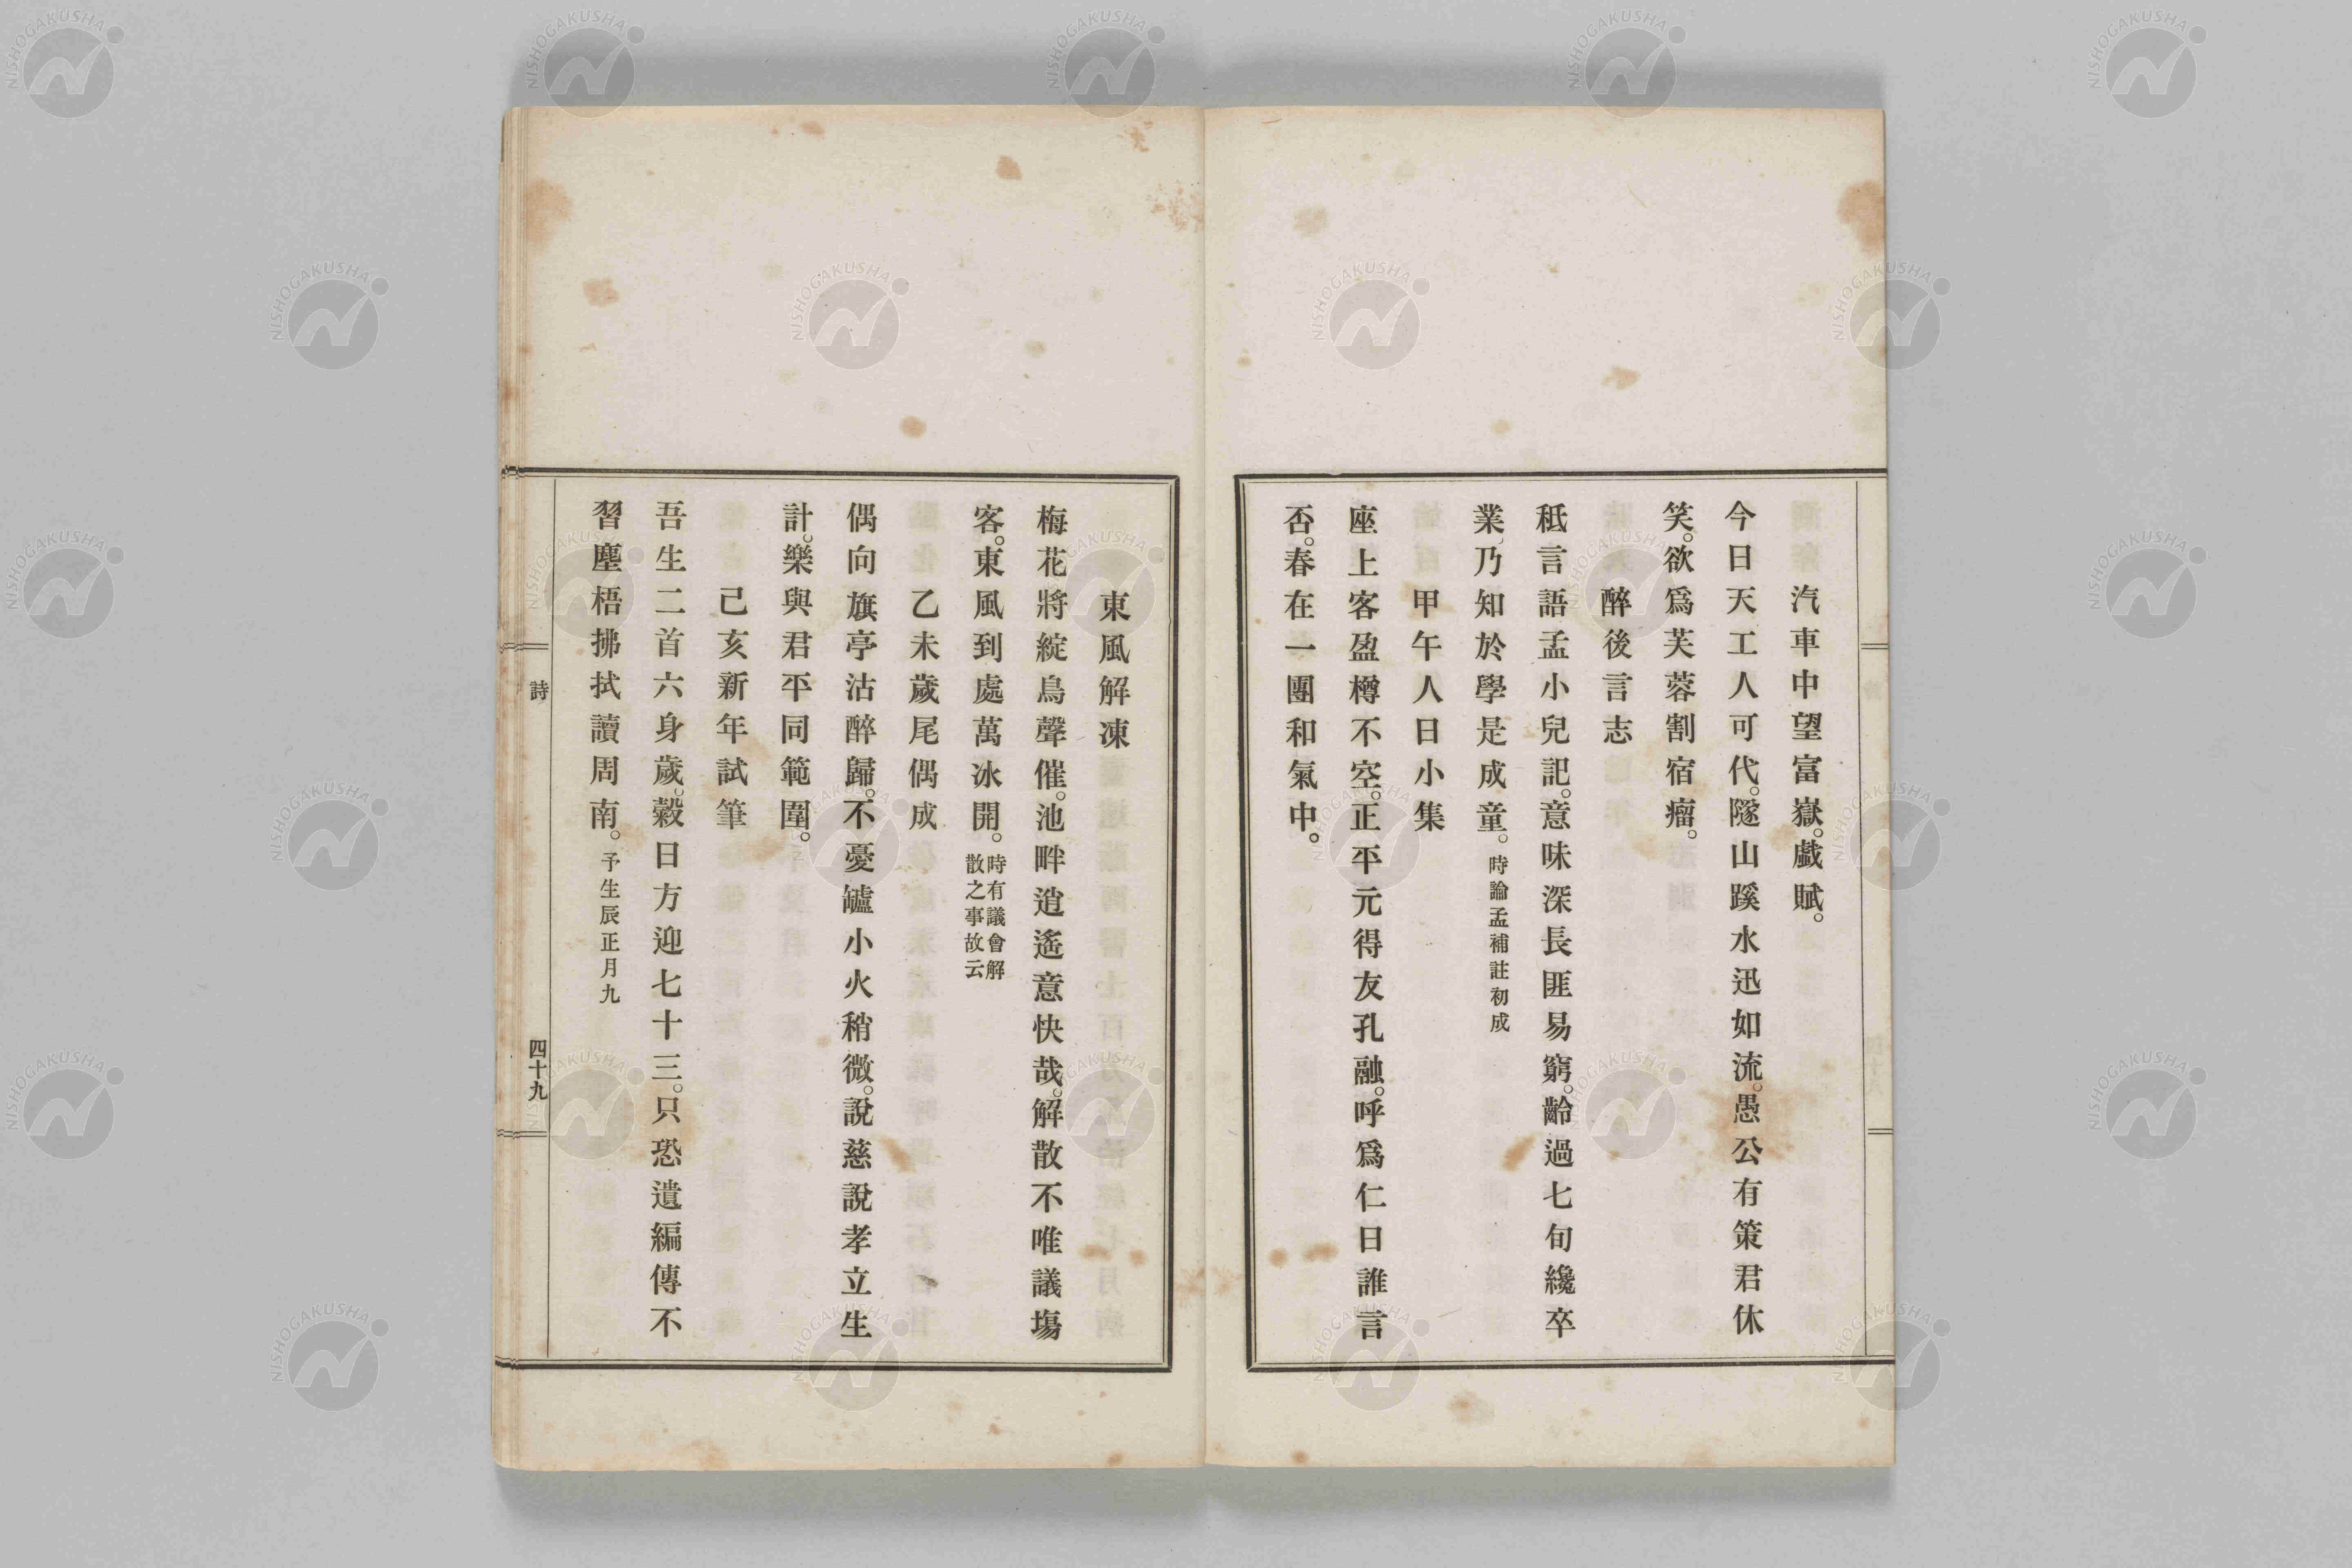 汽車中望富嶽。戲賦。
今日天工人可代。隧山蹊水迅如流。愚公有策君休
笑。欲爲芙蓉割宿瘤。
醉後言志
秪言語孟小兒記。意味深長匪易窮。齡過七旬纔卒
業、乃知於學是成童。時論孟補註初成
甲午人日小集
座上客盈樽不空。正平元得友孔融。呼爲仁日誰言
否。春在一團和氣中。
東風解凍
梅花將綻鳥聲催。池畔逍遙意快哉。解散不唯議塲
客。東風到處萬冰開。時有議會解
散之事故云
乙未歲尾偶成
偶向旗亭沽醉歸。不憂罏小火稍微。說慈說孝立生
計。樂與君平同範圍。
己亥新年試筆
吾生二首六身歲。穀日方迎七十三。只恐遺編傳不
習塵梧拂拭讀周南。予生辰正月九
詩
四十九
NISHOGAKUSHA